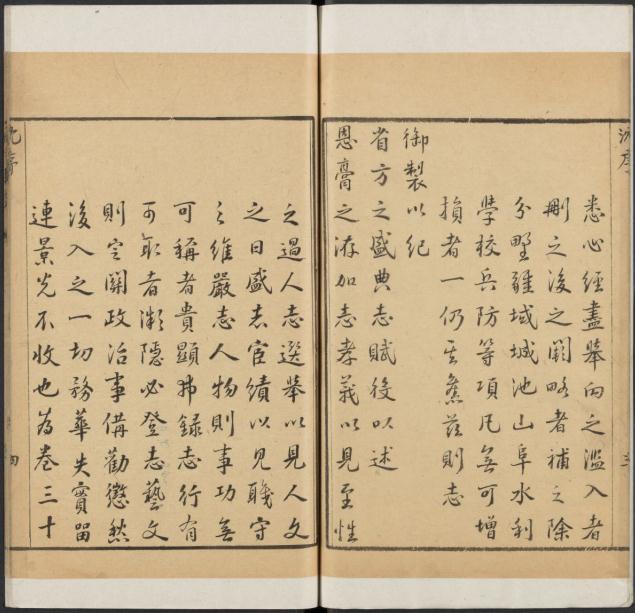 悉心經畫舉向之濫入者
刪之後之闕略者補之除
分野疆域城池山阜水利
學校兵防等項凡無可增
損者一仍其舊茲則志
御製以紀
省方之盛典志賦役以述
恩膏之游加志孝義以見至性
之過人志選舉以見人文
之日盛志宦績以見職守
之維嚴志人物則事功無
可稱者貴顯弗錄志行有
可取者潛隱必登志藝文
則定關政治事備勸懲然
後入之一切務華失實留
連景光不收也為卷三十
沈序
四